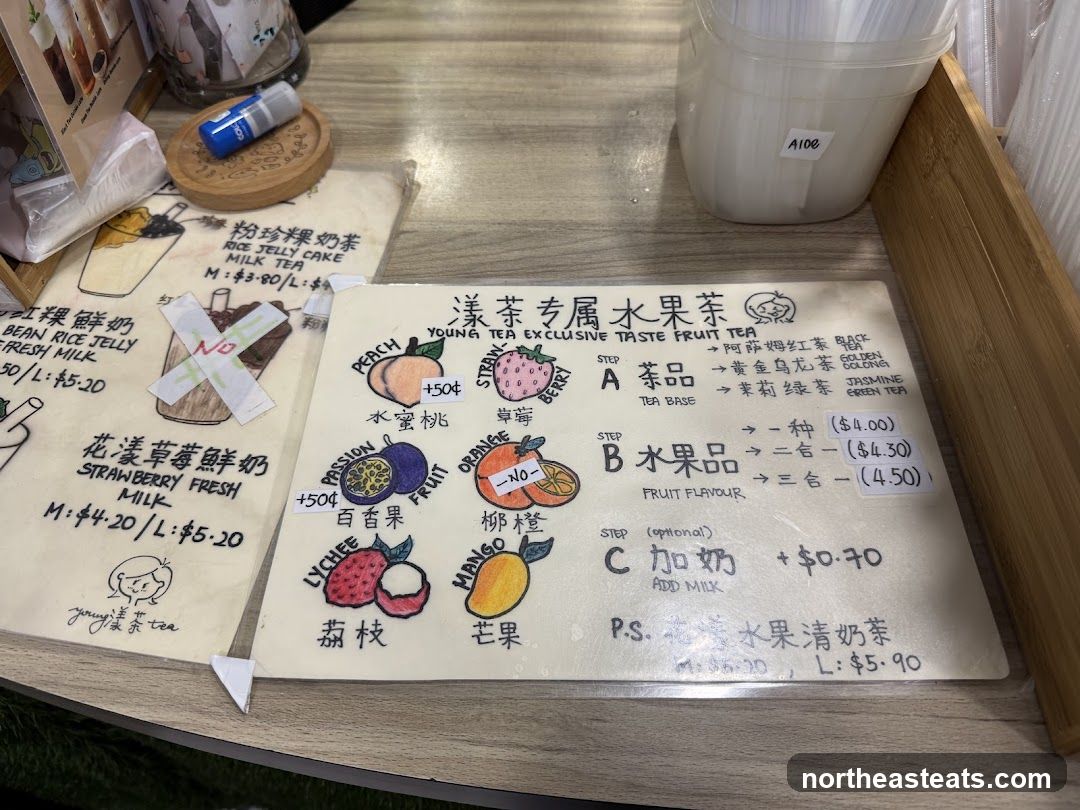 粉珍粿奶茶
RICE JELLY CAKE
MILK TEA
M:$3.80/L:$
红粿鮮奶
BEAN RICE JELLY
FRESH MILK
50/L:$5.20
NO
花漾草莓鮮奶
STRAWBERRY FRESH
MILK
M:$4.20/L:$5.20
young漾茶tea
Aloe
漾茶专属水果茶
YOUNG TEA EXCLUSIVE TASTE FRUIT TEA
PEACH
+50¢
水蜜桃
STRAWBERRY
草莓
PASSION FRUIT
+50¢
百香果
ORANGE
-NO-
柳橙
LYCHEE
荔枝
MANGO
芒果
STEP
A 茶品
TEA BASE
→阿萨姆红茶 BLACK TEA
→黄金乌龙茶 GOLDEN OOLONG
→茉莉绿茶 JASMINE GREEN TEA
STEP
B 水果品
FRUIT FLAVOUR
→一种 ($4.00)
→二合一 ($4.30)
→三合一 (4.50)
STEP (optional)
C 加奶 +$0.70
ADD MILK
P.S. 花漾水果清奶茶
M:$5.20, L:$5.90
northeasteats.com